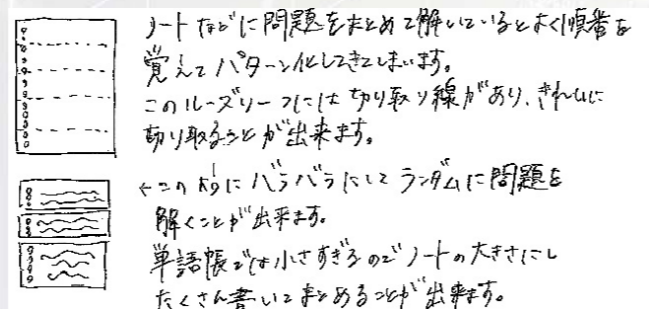 ノートなどに問題をまとめて解いているとよく順番を
覚えてパターン化してきてしまいます。
このルーズリーフには切り取り線があり、きれいに
切り取ることが出来ます。
←このようにバラバラにしてランダムに問題を
解くことが出来ます。
単語帳では小さすぎるのでノートの大きさにし
たくさん書いてまとめることが出来ます。